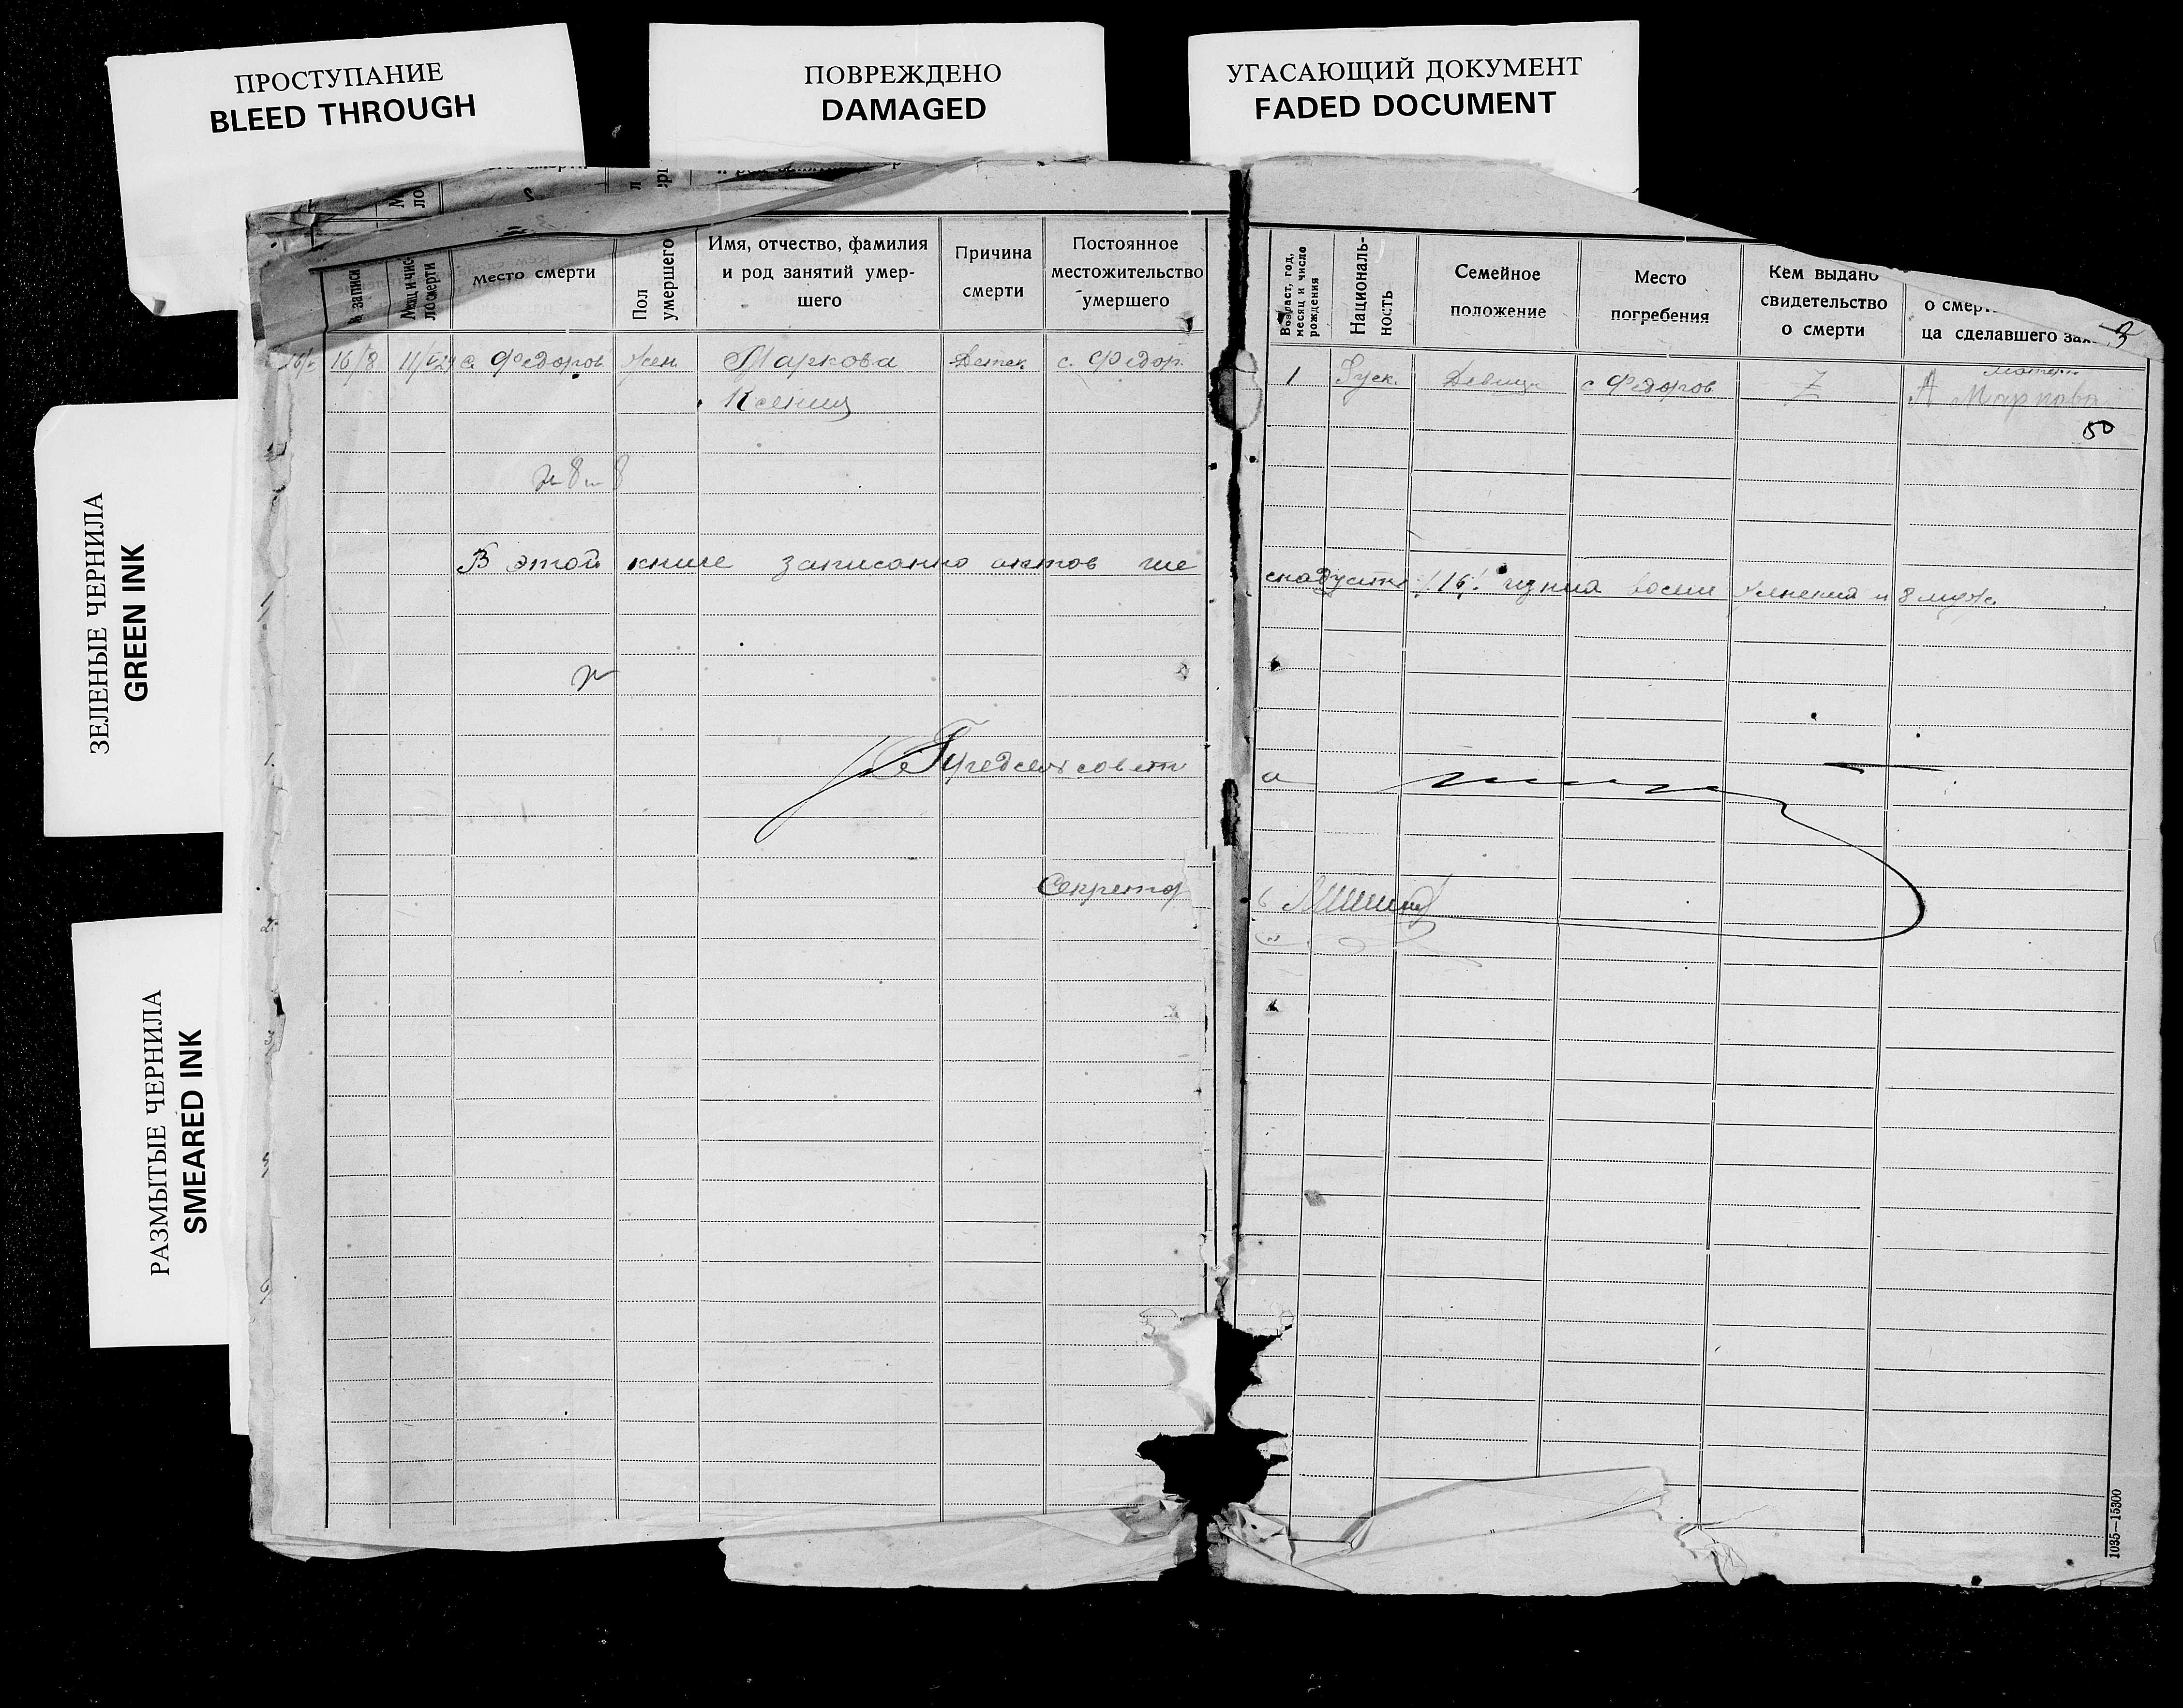 ПРОСТУПАНИЕ
BLEED THROUGH
ПОВРЕЖДЕНО
DAMAGED
УГАСАЮЩИЙ ДОКУМЕНТ
FADED DOCUMENT
ЗЕЛЕНЫЕ ЧЕРНИЛА
GREEN INK
РАЗМЫТЫЕ ЧЕРНИЛА
SMEARED INK
№ записи
Месяц и число смерти
Место смерти
Пол умершего
Имя, отчество, фамилия
и род занятий умер-
шего
Причина
смерти
Постоянное
местожительство
умершего
Возраст, год,
месяц и число
рождения
Националь-
ность
Семейное
положение
Место
погребения
Кем выдано
свидетельство
о смерти
о смер
ца сделавшего зая
3
16/8 с. Федоров. жен. Маркова Детск. с. Федор.
Ксения
1 Руск. Девица с Федоров. Z А Маркова
мать
50
ж 8 м 8
В этой книге записанно актов шеснадцать /16/ из них восем женских и 8 мужс.
Предсельсовета
Секретарь
1035—15300